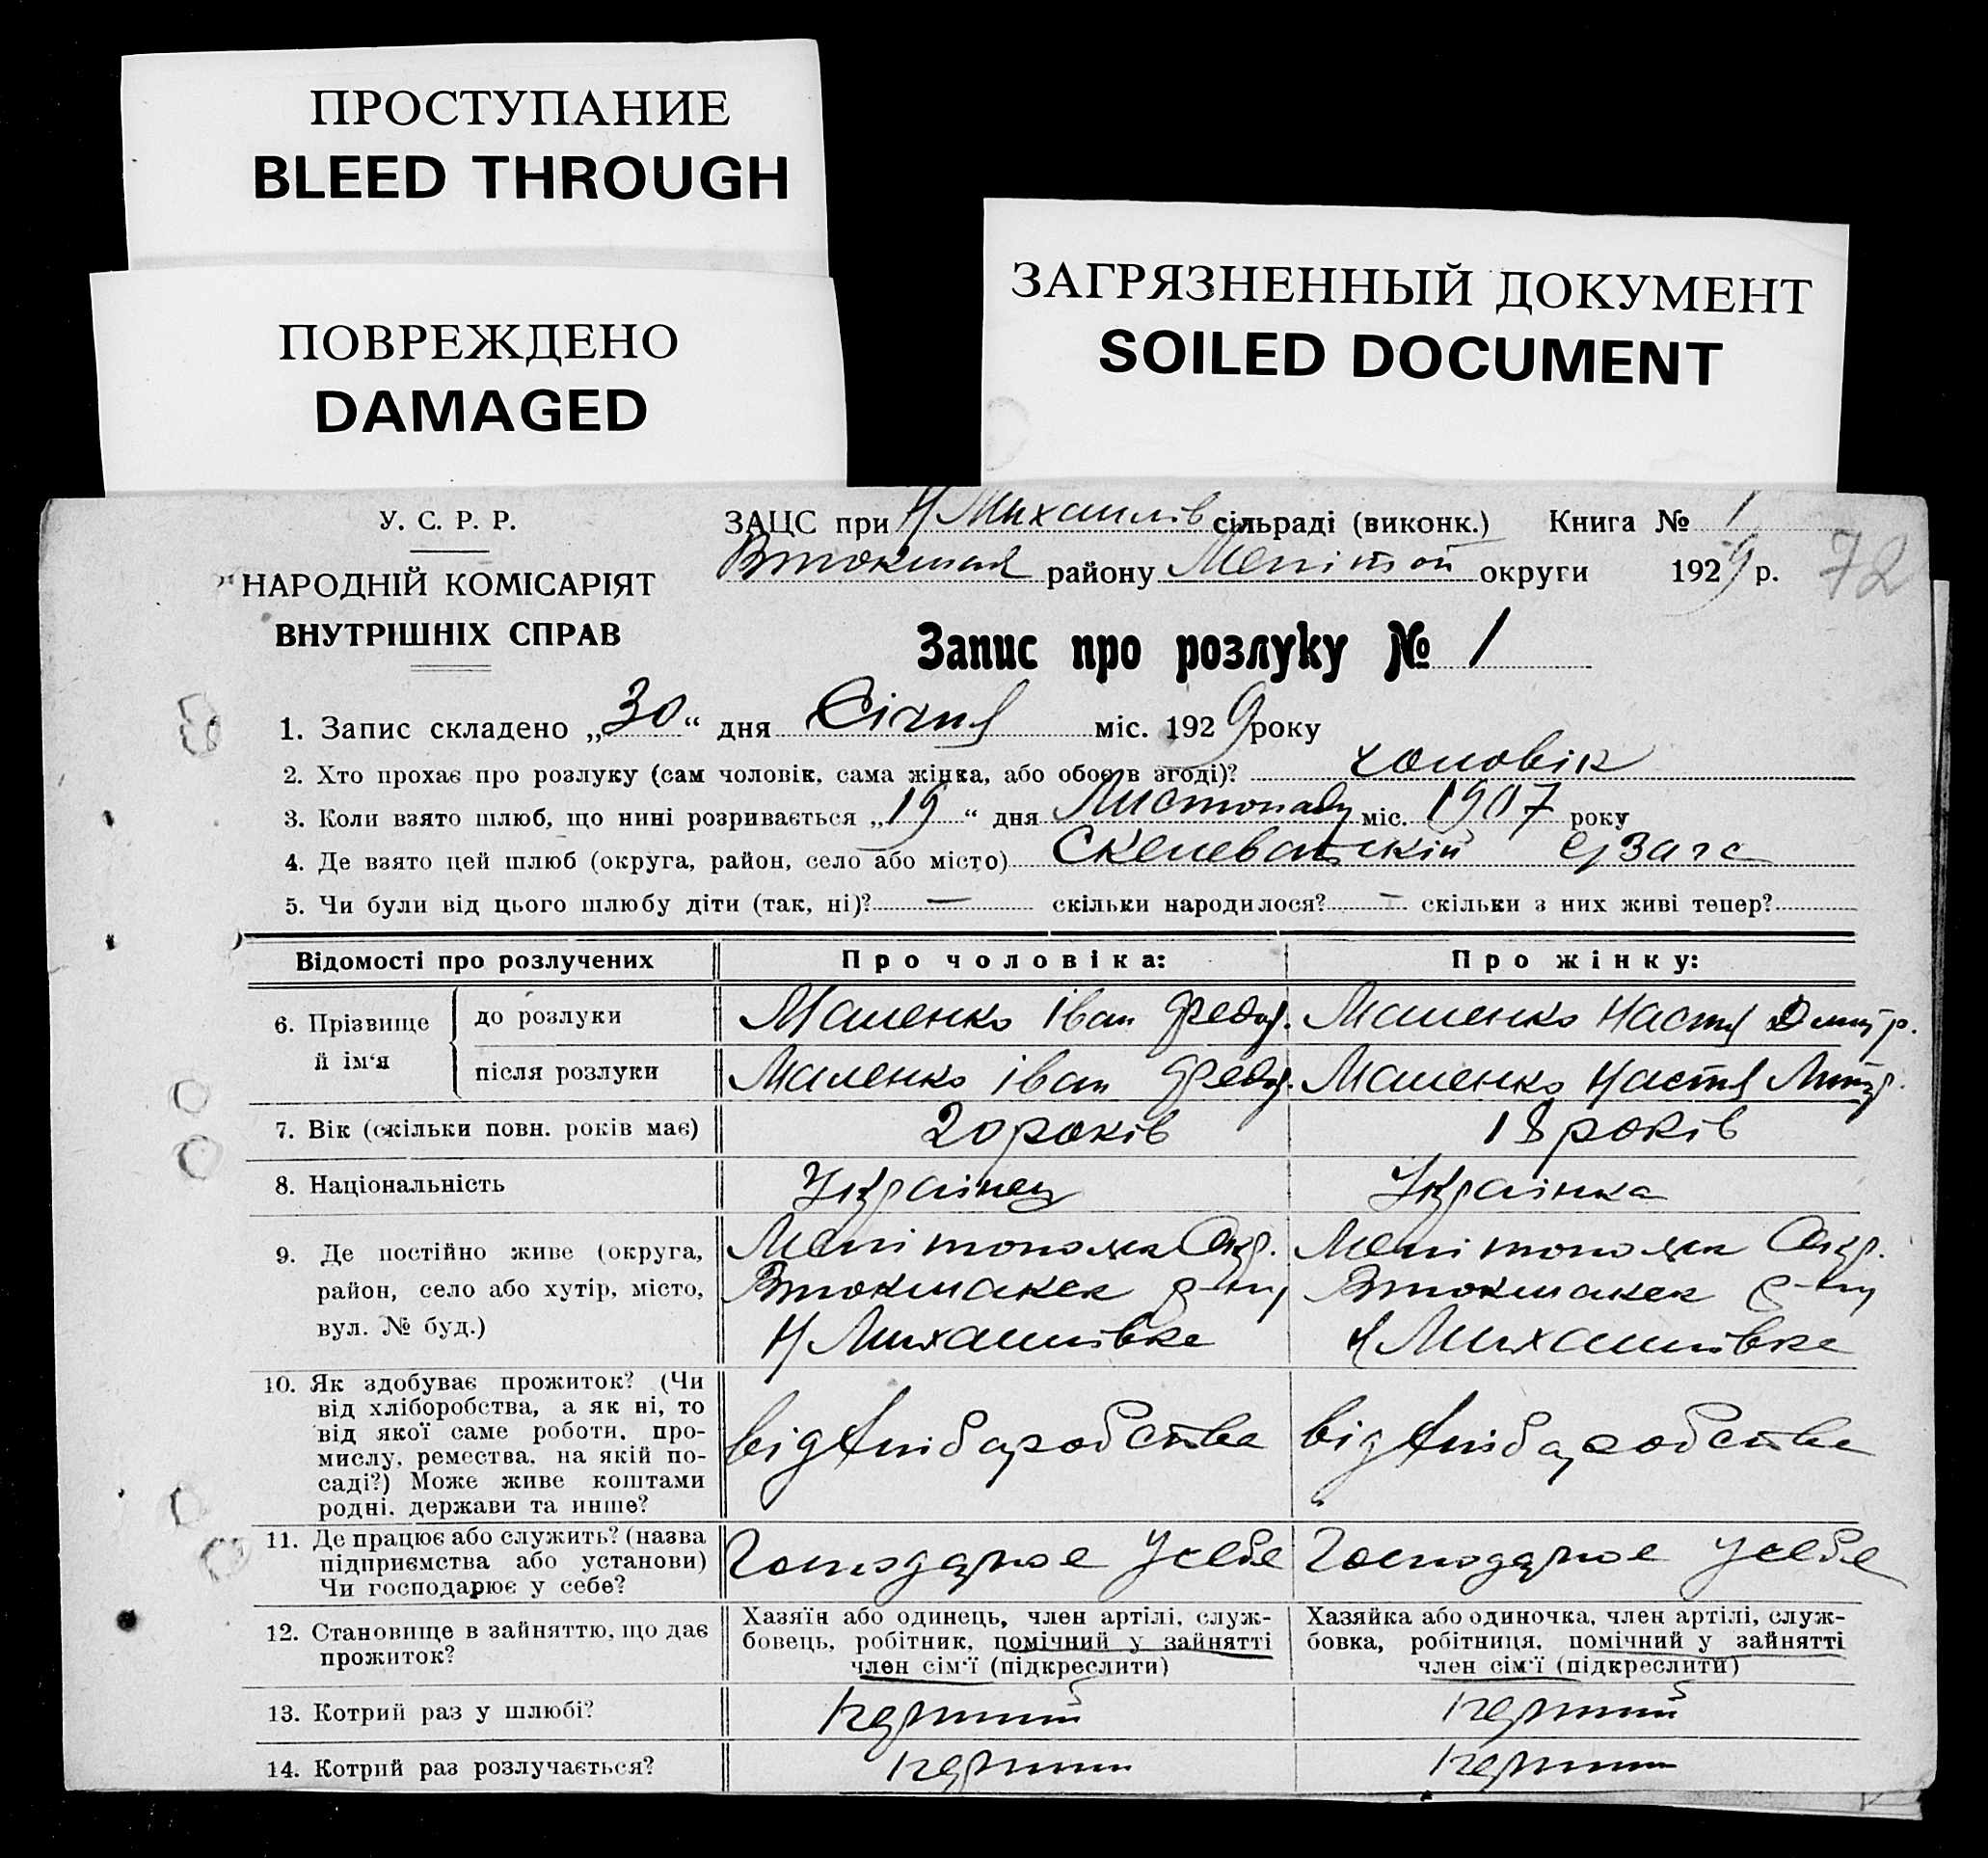 ПРОСТУПАНИЕ
BLEED THROUGH
ПОВРЕЖДЕНО
DAMAGED
ЗАГРЯЗНЕННЫЙ ДОКУМЕНТ
SOILED DOCUMENT
У. С. Р. Р.
НАРОДНІЙ КОМІСАРІЯТ
ВНУТРІШНІХ СПРАВ
ЗАЦС при Н Михайлів сільраді (виконк.) Книга № 1
Втокмач району Меліт ой округи 1929 р. 72
Запис про розлуку № 1
1. Запис складено „30“ дня Січня міс. 1929 року
2. Хто прохає про розлуку (сам чоловік, сама жінка, або обоє в згоді)? чоловік
3. Коли взято шлюб, що нині розривається „19“ дня Листопаду міс. 1907 року
4. Де взято цей шлюб (округа, район, село або місто) Скелеватский
5. Чи були від цього шлюбу діти (так, ні)? — скільки народилося? — скільки з них живі тепер?
Відомості про розлучених Про чоловіка: Про жінку:
6. Прізвище й ім‘я
до розлуки Маленко Іван Федор. Маленко Настя Дмитр.
після розлуки Маленко Іван Федор. Маленко Настя Дмитр.
7. Вік (скільки повн. років має) 20 років 18 років
8. Національність Українец Українка
9. Де постійно живе (округа,
район, село або хутір, місто,
вул. № буд.)
Мелітопольск Окр.
Втокмакск р-ну
Н Михайлівке
Мелітопольск Окр.
Втокмакск р-ну
Н Михайлівке
10. Як здобуває прожиток? (Чи
від хліборобства, а як ні, то
від якої саме роботи, про-
мислу, ремества, на якій по-
саді?) Може живе коштами
родні, держави та инше?
від хлібаробства
від хлібаробства
11. Де працює або служить? (назва
підприємства або установи)
Чи господарює у себе?
Господарює у себе
Господарює у себе
12. Становище в зайняттю, що дає
прожиток?
Хазяїн або одинець, член артілі, служ-
бовець, робітник, помічний у зайнятті
член сім‘ї (підкреслити)
Хазяйка або одиночка, член артілі, служ-
бовка, робітниця, помічний у зайнятті
член сім‘ї (підкреслити)
13. Котрий раз у шлюбі? перший перший
14. Котрий раз розлучається? перший перший